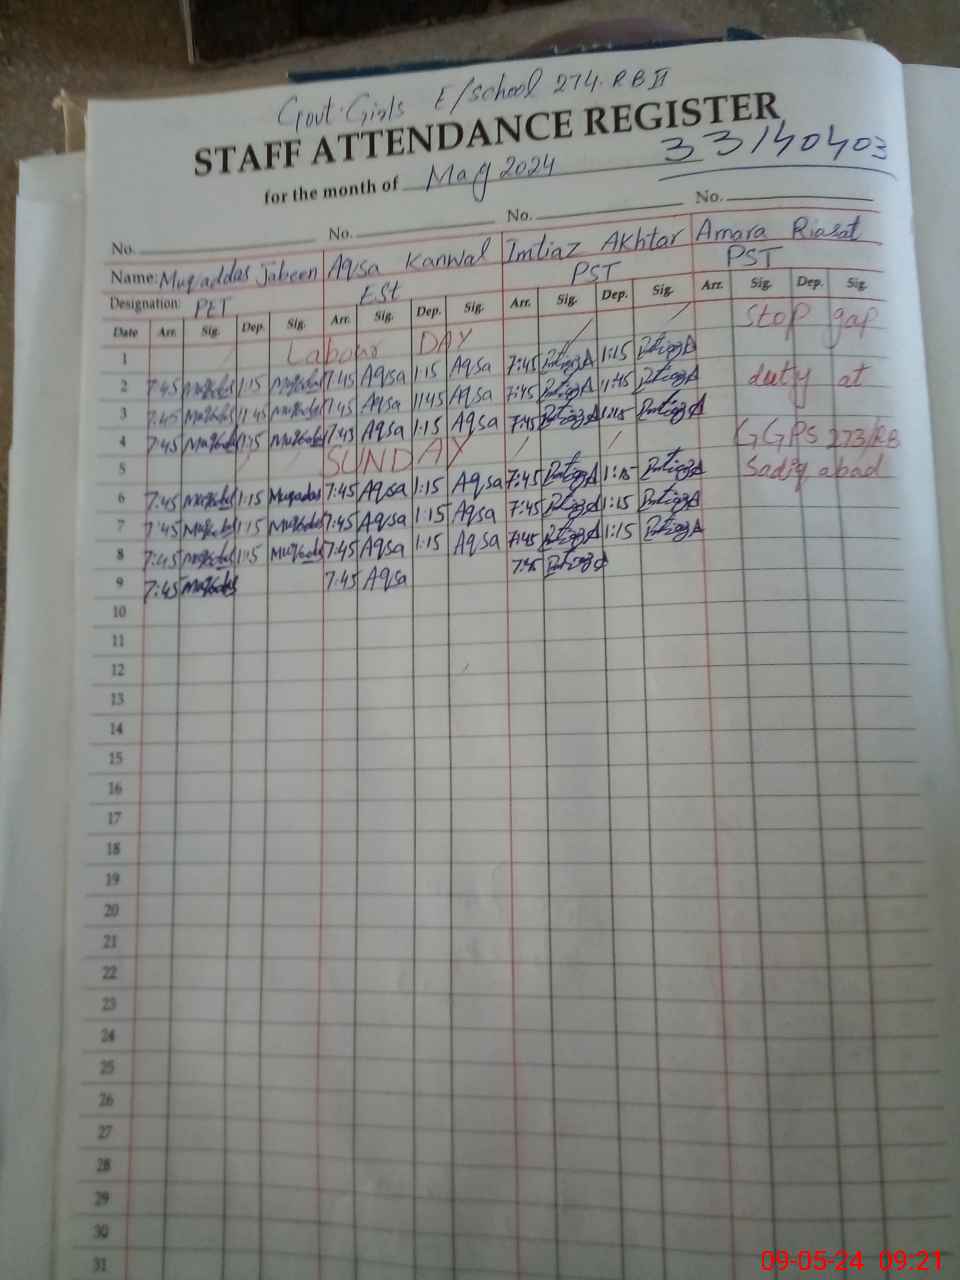 Govt. Girls E/School 274.RB II
STAFF ATTENDANCE REGISTER
33140403
for the month of May 2024
No. No. No. No.
Name: Muqaddas Jabeen Aqsa Kanwal Imtiaz Akhtar Amara Riasat
Designation: PET ESt PST PST
Date Arr. Sig. Dep. Sig. Arr. Sig. Dep. Sig. Arr. Sig. Dep. Sig. Arr. Sig. Dep. Sig.
1 Labour DAY Stop gap
2 7:45 1:15 7:45 Aqsa 1:15 Aqsa 7:45 1:15 duty at
3 7:45 11:45 7:45 Aqsa 11:45 Aqsa 7:45 11:45
4 7:45 1:15 7:45 Aqsa 1:15 Aqsa 7:45 1:15 GGPS 273/RB
5 SUNDAY Sadiq abad
6 7:45 1:15 Muqadas 7:45 Aqsa 1:15 Aqsa 7:45 1:15
7 7:45 1:15 7:45 Aqsa 1:15 Aqsa 7:45 1:15
8 7:45 1:15 7:45 Aqsa 1:15 Aqsa 7:45 1:15
9 7:45 7:45 Aqsa 7:45
10
11
12
13
14
15
16
17
18
19
20
21
22
23
24
25
26
27
28
29
30
31
09-05-24 09:21